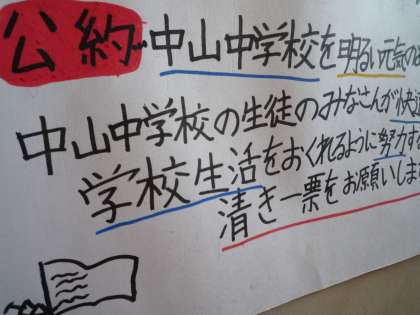 公約 中山中学校を明るい元気の
中山中学校の生徒のみなさんが快
学校生活をおくれるように努力す
清き一票をお願いしま